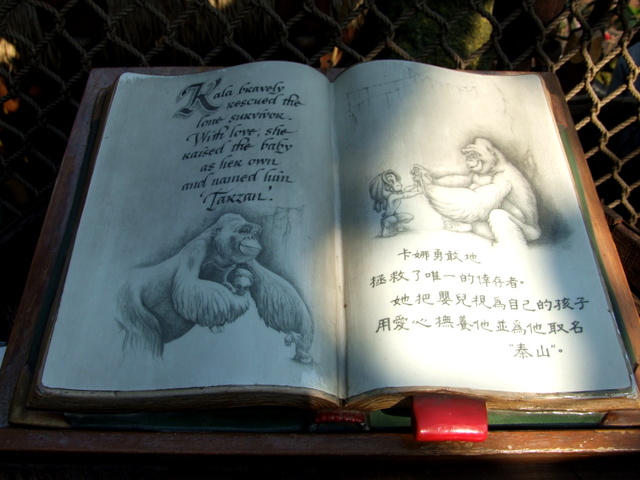 Kala bravely
rescued the
lone survivor.
With love, she
raised the baby
as her own
and named him
'Tarzan'.
卡娜勇敢地
拯救了唯一的倖存者。
她把嬰兒視為自己的孩子
用愛心撫養他並為他取名
"泰山"。